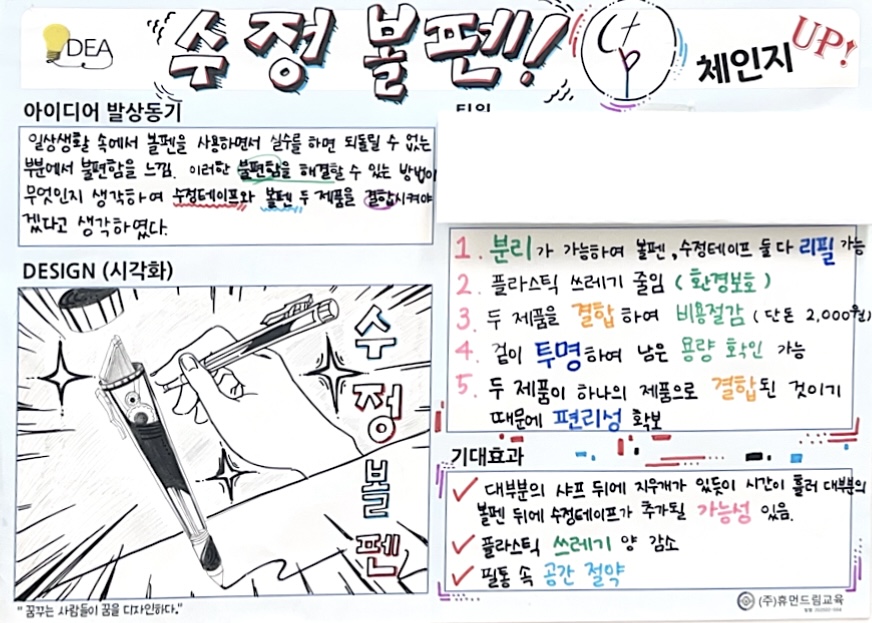 IDEA
수정 볼펜!
C+P
체인지 UP!
아이디어 발상동기
일상생활 속에서 볼펜을 사용하면서 실수를 하면 되돌릴 수 없는
부분에서 불편함을 느낌. 이러한 불편함을 해결할 수 있는 방법이
무엇인지 생각하여 수정테이프와 볼펜 두 제품을 결합시켜야
겠다고 생각하였다.
DESIGN (시각화)
수정볼펜
"꿈꾸는 사람들이 꿈을 디자인하다."
1. 분리가 가능하여 볼펜, 수정테이프 둘 다 리필 가능
2. 플라스틱 쓰레기 줄임 (환경보호)
3. 두 제품을 결합하여 비용절감 (단돈 2,000원)
4. 겉이 투명하여 남은 용량 확인 가능
5. 두 제품이 하나의 제품으로 결합된 것이기
때문에 편리성 확보
기대효과
✓ 대부분의 샤프 뒤에 지우개가 있듯이 시간이 흘러 대부분의
볼펜 뒤에 수정테이프가 추가될 가능성 있음.
✓ 플라스틱 쓰레기 양 감소
✓ 필통 속 공간 절약
(주)휴먼드림교육